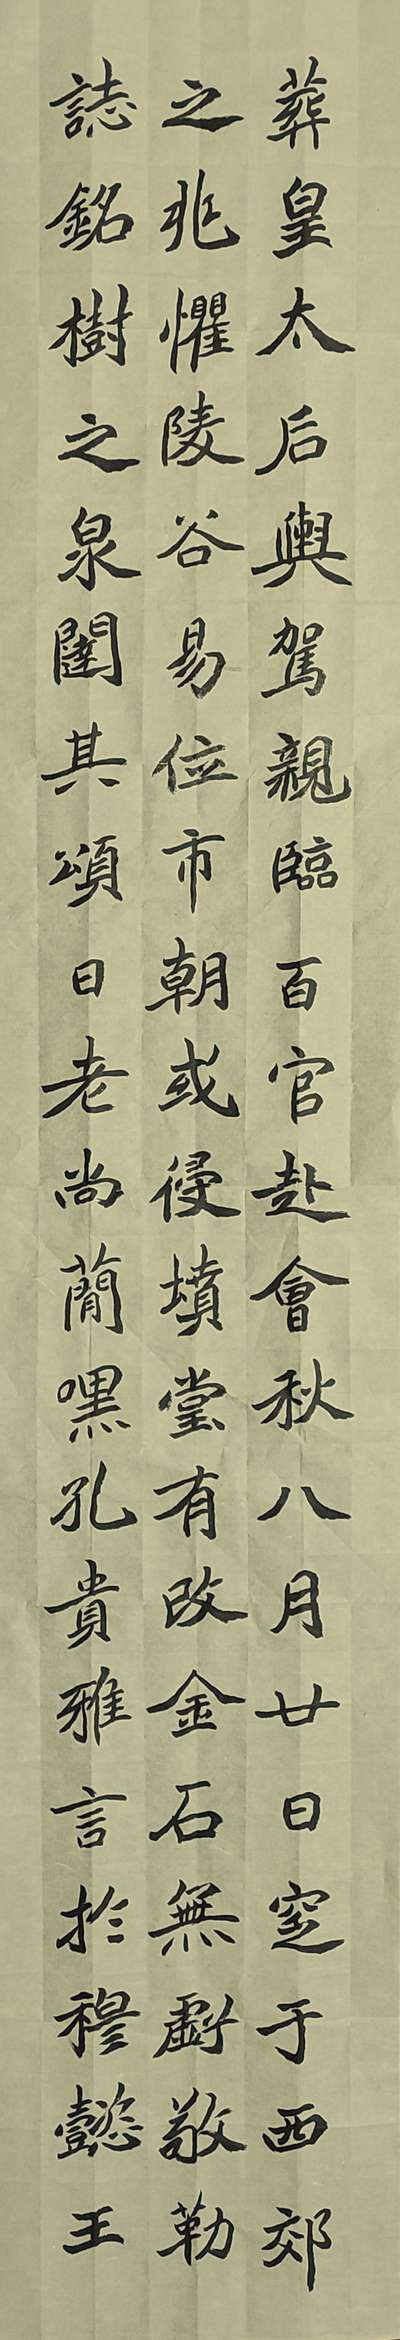 葬皇太后輿駕親臨百官赴會秋八月廿日窆于西郊
之兆懼陵谷易位市朝或侵墳堂有改金石無虧敬勒
誌銘樹之泉闥其頌曰老尚簡嘿孔貴雅言於穆懿王